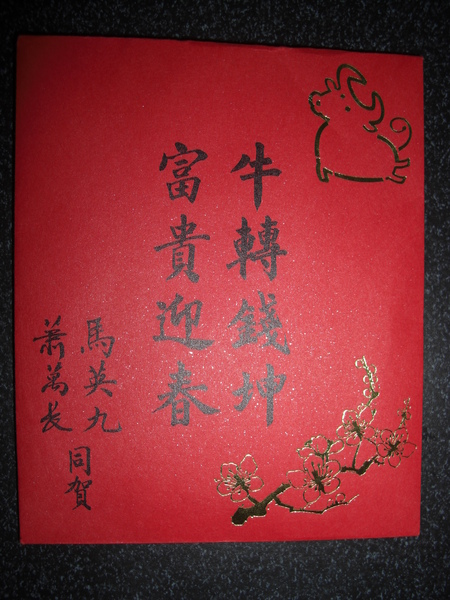 牛轉錢坤
富貴迎春
馬英九
蕭萬長
同賀